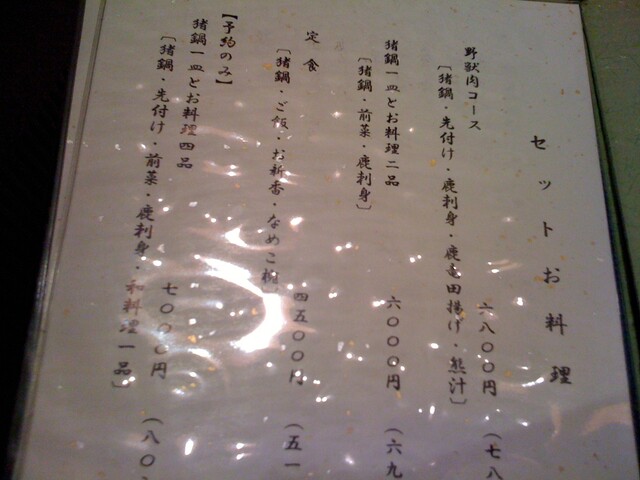 セットお料理
野獣肉コース 六八〇〇円 (七八
〔猪鍋・先付け・鹿刺身・鹿竜田揚げ・熊汁〕
猪鍋一皿とお料理二品 六〇〇〇円 (六九
〔猪鍋・前菜・鹿刺身〕
定食 四五〇〇円 (五一
〔猪鍋・ご飯・お新香・なめこ樹
【予約のみ】
猪鍋一皿とお料理四品 七〇〇〇円 (八〇
〔猪鍋・先付け・前菜・鹿刺身・和料理一品〕